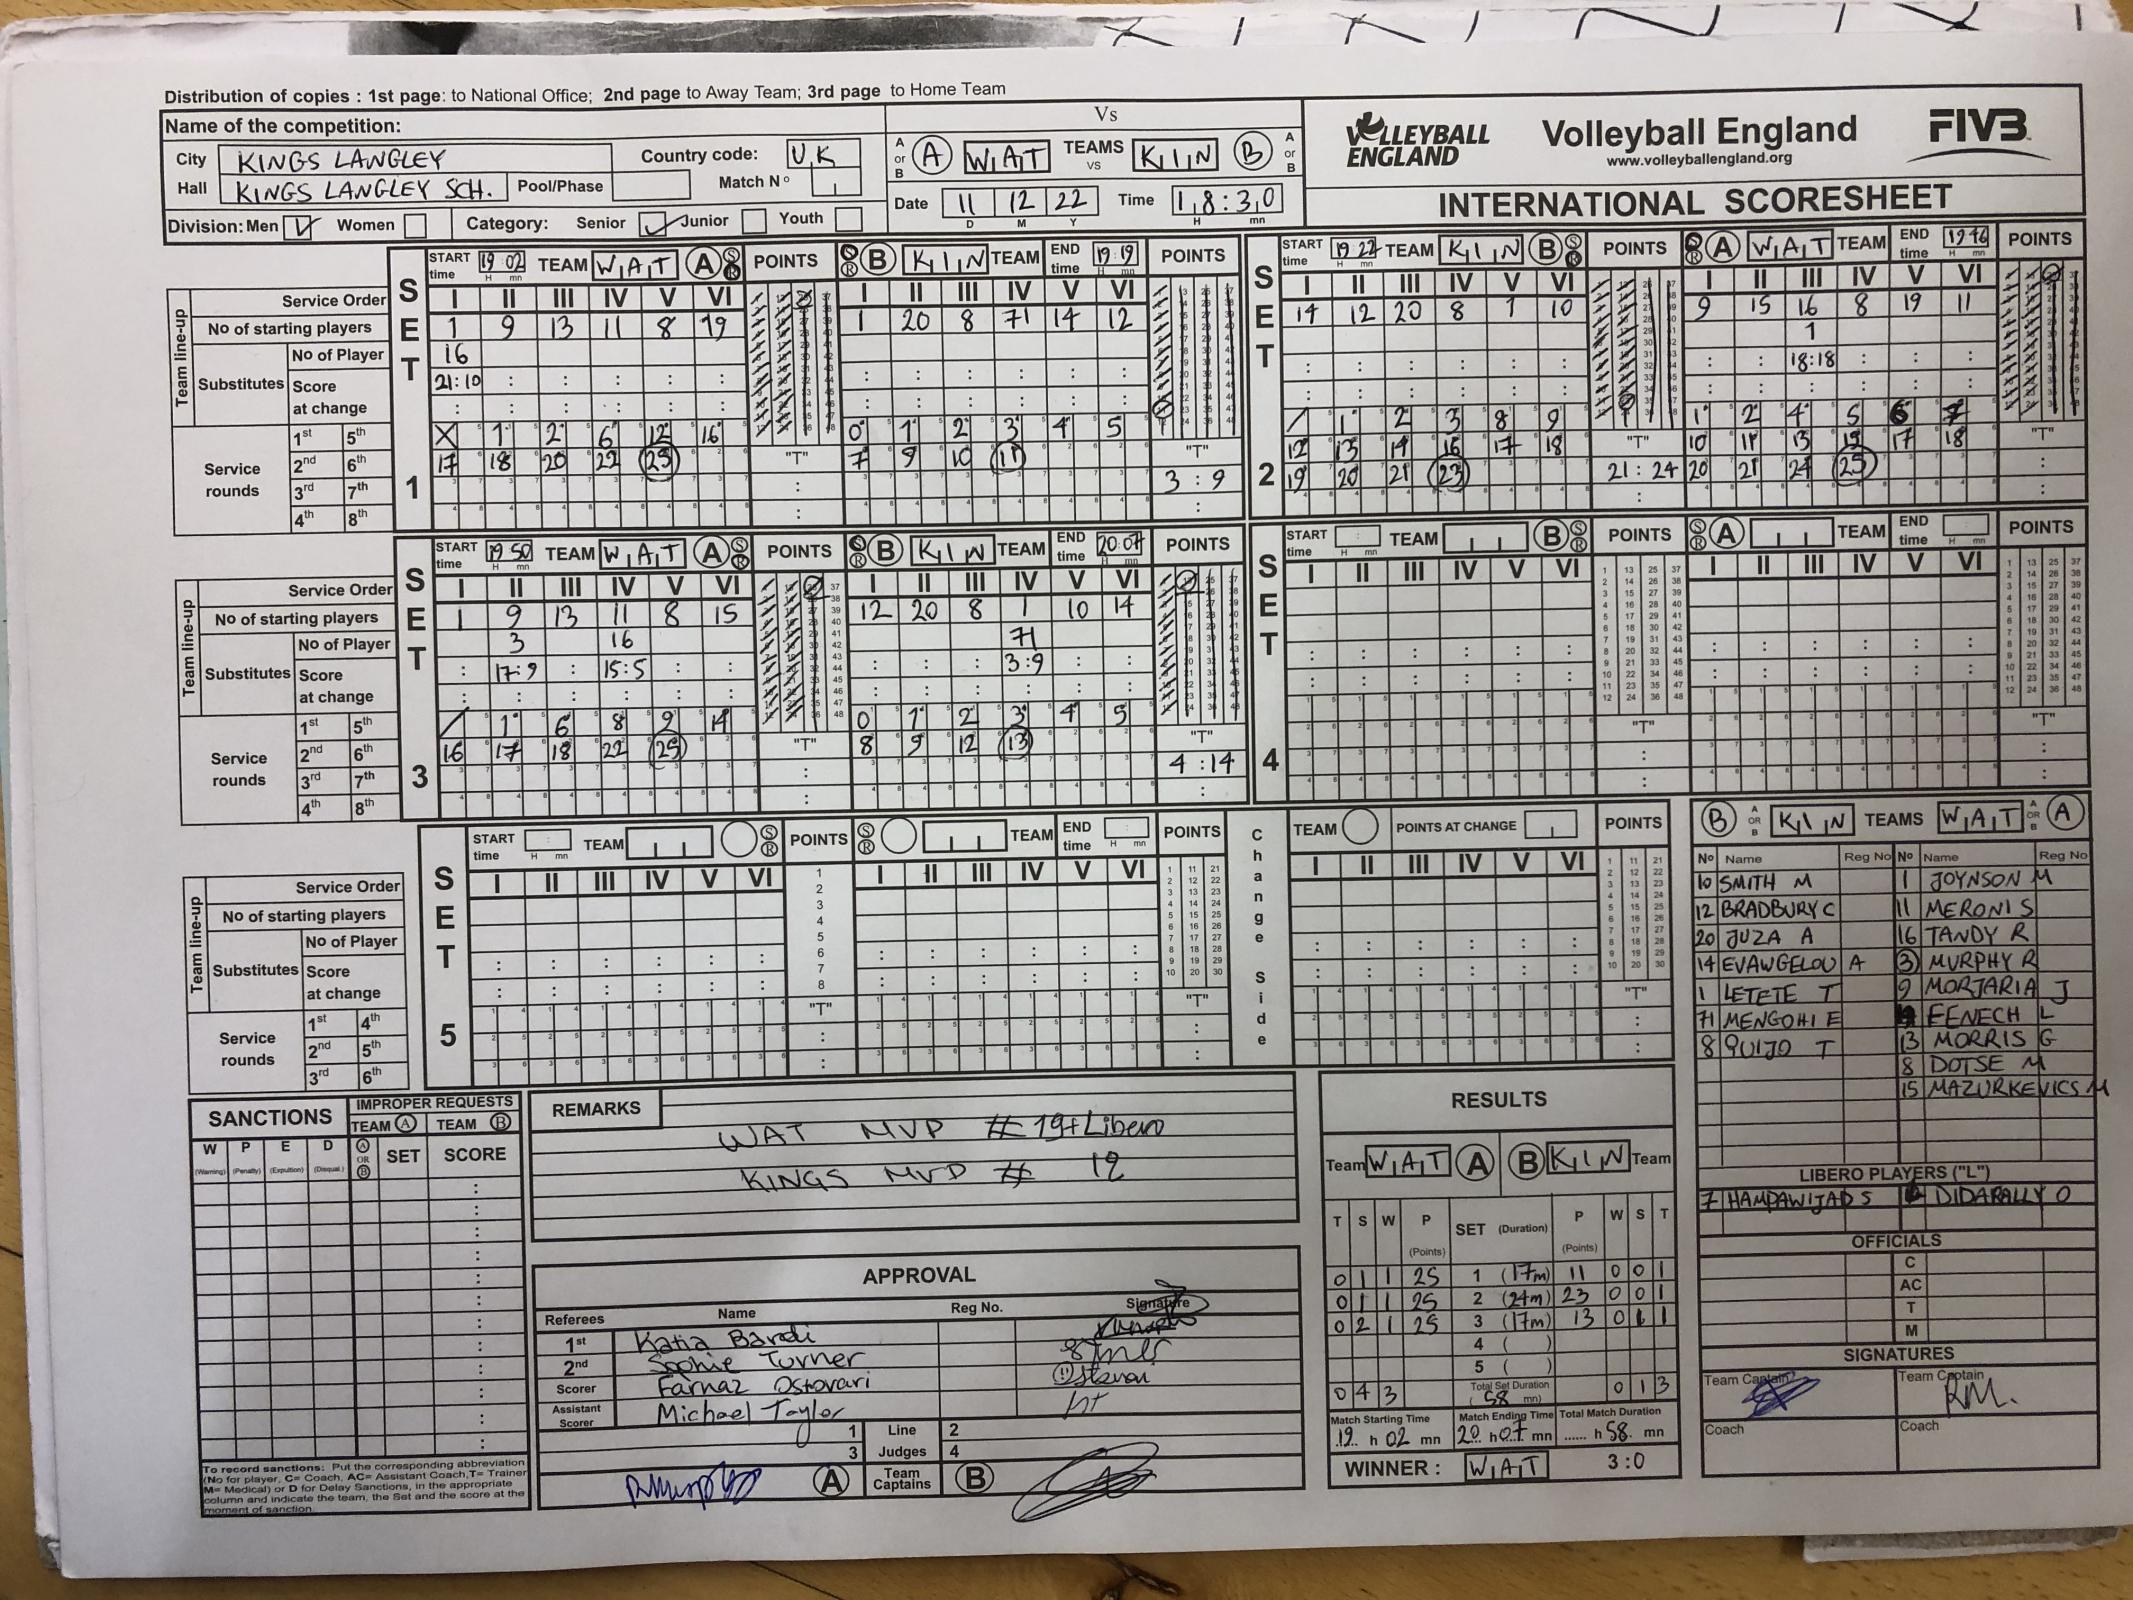 Distribution of copies : 1st page: to National Office; 2nd page to Away Team; 3rd page to Home Team
Name of the competition:
City KINGS LANGLEY Country code: UK
Hall KINGS LANGLEY SCH. Pool/Phase Match Nº
Division: Men Women Category: Senior Junior Youth
Vs
A or B A WAT TEAMS vs KIN B A or B
Date 11 12 22 Time 18:30
D M Y H mn
VOLLEYBALL ENGLAND
Volleyball England
www.volleyballengland.org
FIVB
INTERNATIONAL SCORESHEET
SET 1
START time 19:02 TEAM WAT A POINTS B KIN TEAM END time 19:19 POINTS
Service Order I II III IV V VI I II III IV V VI
No of starting players 1 9 13 11 8 19 1 20 8 71 14 12
Team line-up Substitutes No of Player 16
Score at change 21:10
Service rounds 1st 5th X 1 2 6 12 16 0 1 2 3 4 5
2nd 6th 17 18 20 22 25 "T" 7 9 10 11 "T"
3rd 7th 3 : 9
4th 8th
SET 2
START time 19:22 TEAM KIN B POINTS A WAT TEAM END time 19 46 POINTS
I II III IV V VI I II III IV V VI
14 12 20 8 1 10 9 15 16 8 19 11
1
18:18
1 2 3 8 9 1 2 4 5 6 7
12 13 14 16 17 18 "T" 10 11 13 15 17 18 "T"
19 20 21 23 21 : 24 20 21 24 25
SET 3
START time 19 50 TEAM WAT A POINTS B KIN TEAM END time 20:07 POINTS
Service Order I II III IV V VI I II III IV V VI
No of starting players 1 9 13 11 8 15 12 20 8 1 10 14
Team line-up Substitutes No of Player 3 16 71
Score at change 17:9 15:5 3:9
Service rounds 1st 5th 1 6 8 9 14 0 1 2 3 4 5
2nd 6th 16 17 18 22 25 "T" 8 9 12 13 "T"
3rd 7th 4 : 14
4th 8th
SET 4
START time TEAM B POINTS A TEAM END time POINTS
I II III IV V VI I II III IV V VI
"T" "T"
SET 5
START time TEAM POINTS TEAM END time POINTS Change Side TEAM POINTS AT CHANGE POINTS
Service Order I II III IV V VI I II III IV V VI I II III IV V VI
No of starting players
Team line-up Substitutes No of Player
Score at change
Service rounds 1st 4th "T" "T" "T"
2nd 5th
3rd 6th
B A OR B KIN TEAMS WAT A OR B A
Nº Name Reg No Nº Name Reg No
10 SMITH M 1 JOYNSON M
12 BRADBURY C 11 MERONI S
20 JUZA A 16 TANDY R
14 EVAWGELOU A 3 MURPHY R
1 LETETE T 9 MORJARIA J
71 MENGOHI E FENECH L
8 QUIJO T 13 MORRIS G
8 DOTSE M
15 MAZURKEVICS M
LIBERO PLAYERS ("L")
7 HAMPAWIJAD S DIDARALLY O
OFFICIALS
C
AC
T
M
SIGNATURES
Team Captain Team Captain
RM.
Coach Coach
SANCTIONS IMPROPER REQUESTS
TEAM A TEAM B
W P E D A OR B SET SCORE
(Warning) (Penalty) (Expultion) (Disqual.)
To record sanctions: Put the corresponding abbreviation
(No for player, C= Coach, AC= Assistant Coach,T= Trainer
M= Medical) or D for Delay Sanctions, in the appropriate
column and indicate the team, the Set and the score at the
moment of sanction.
REMARKS
WAT MVP # 19+Libero
KINGS MVP # 12
APPROVAL
Referees Name Reg No. Signature
1st Katia Bardi
2nd Sophie Turner
Scorer Farnaz Ostovari
Assistant Scorer Michael Taylor
1 Line 2
3 Judges 4
A Team Captains B
RESULTS
Team WAT A B KIN Team
T S W P (Points) SET (Duration) P (Points) W S T
0 1 1 25 1 (17m) 11 0 0 1
0 1 1 25 2 (24m) 23 0 0 1
0 2 1 25 3 (17m) 13 0 1 1
4 ( )
5 ( )
0 4 3 Total Set Duration (58 mn) 0 1 3
Match Starting Time Match Ending Time Total Match Duration
19 h 02 mn 20 h 07 mn ...... h 58 mn
WINNER : WAT 3:0